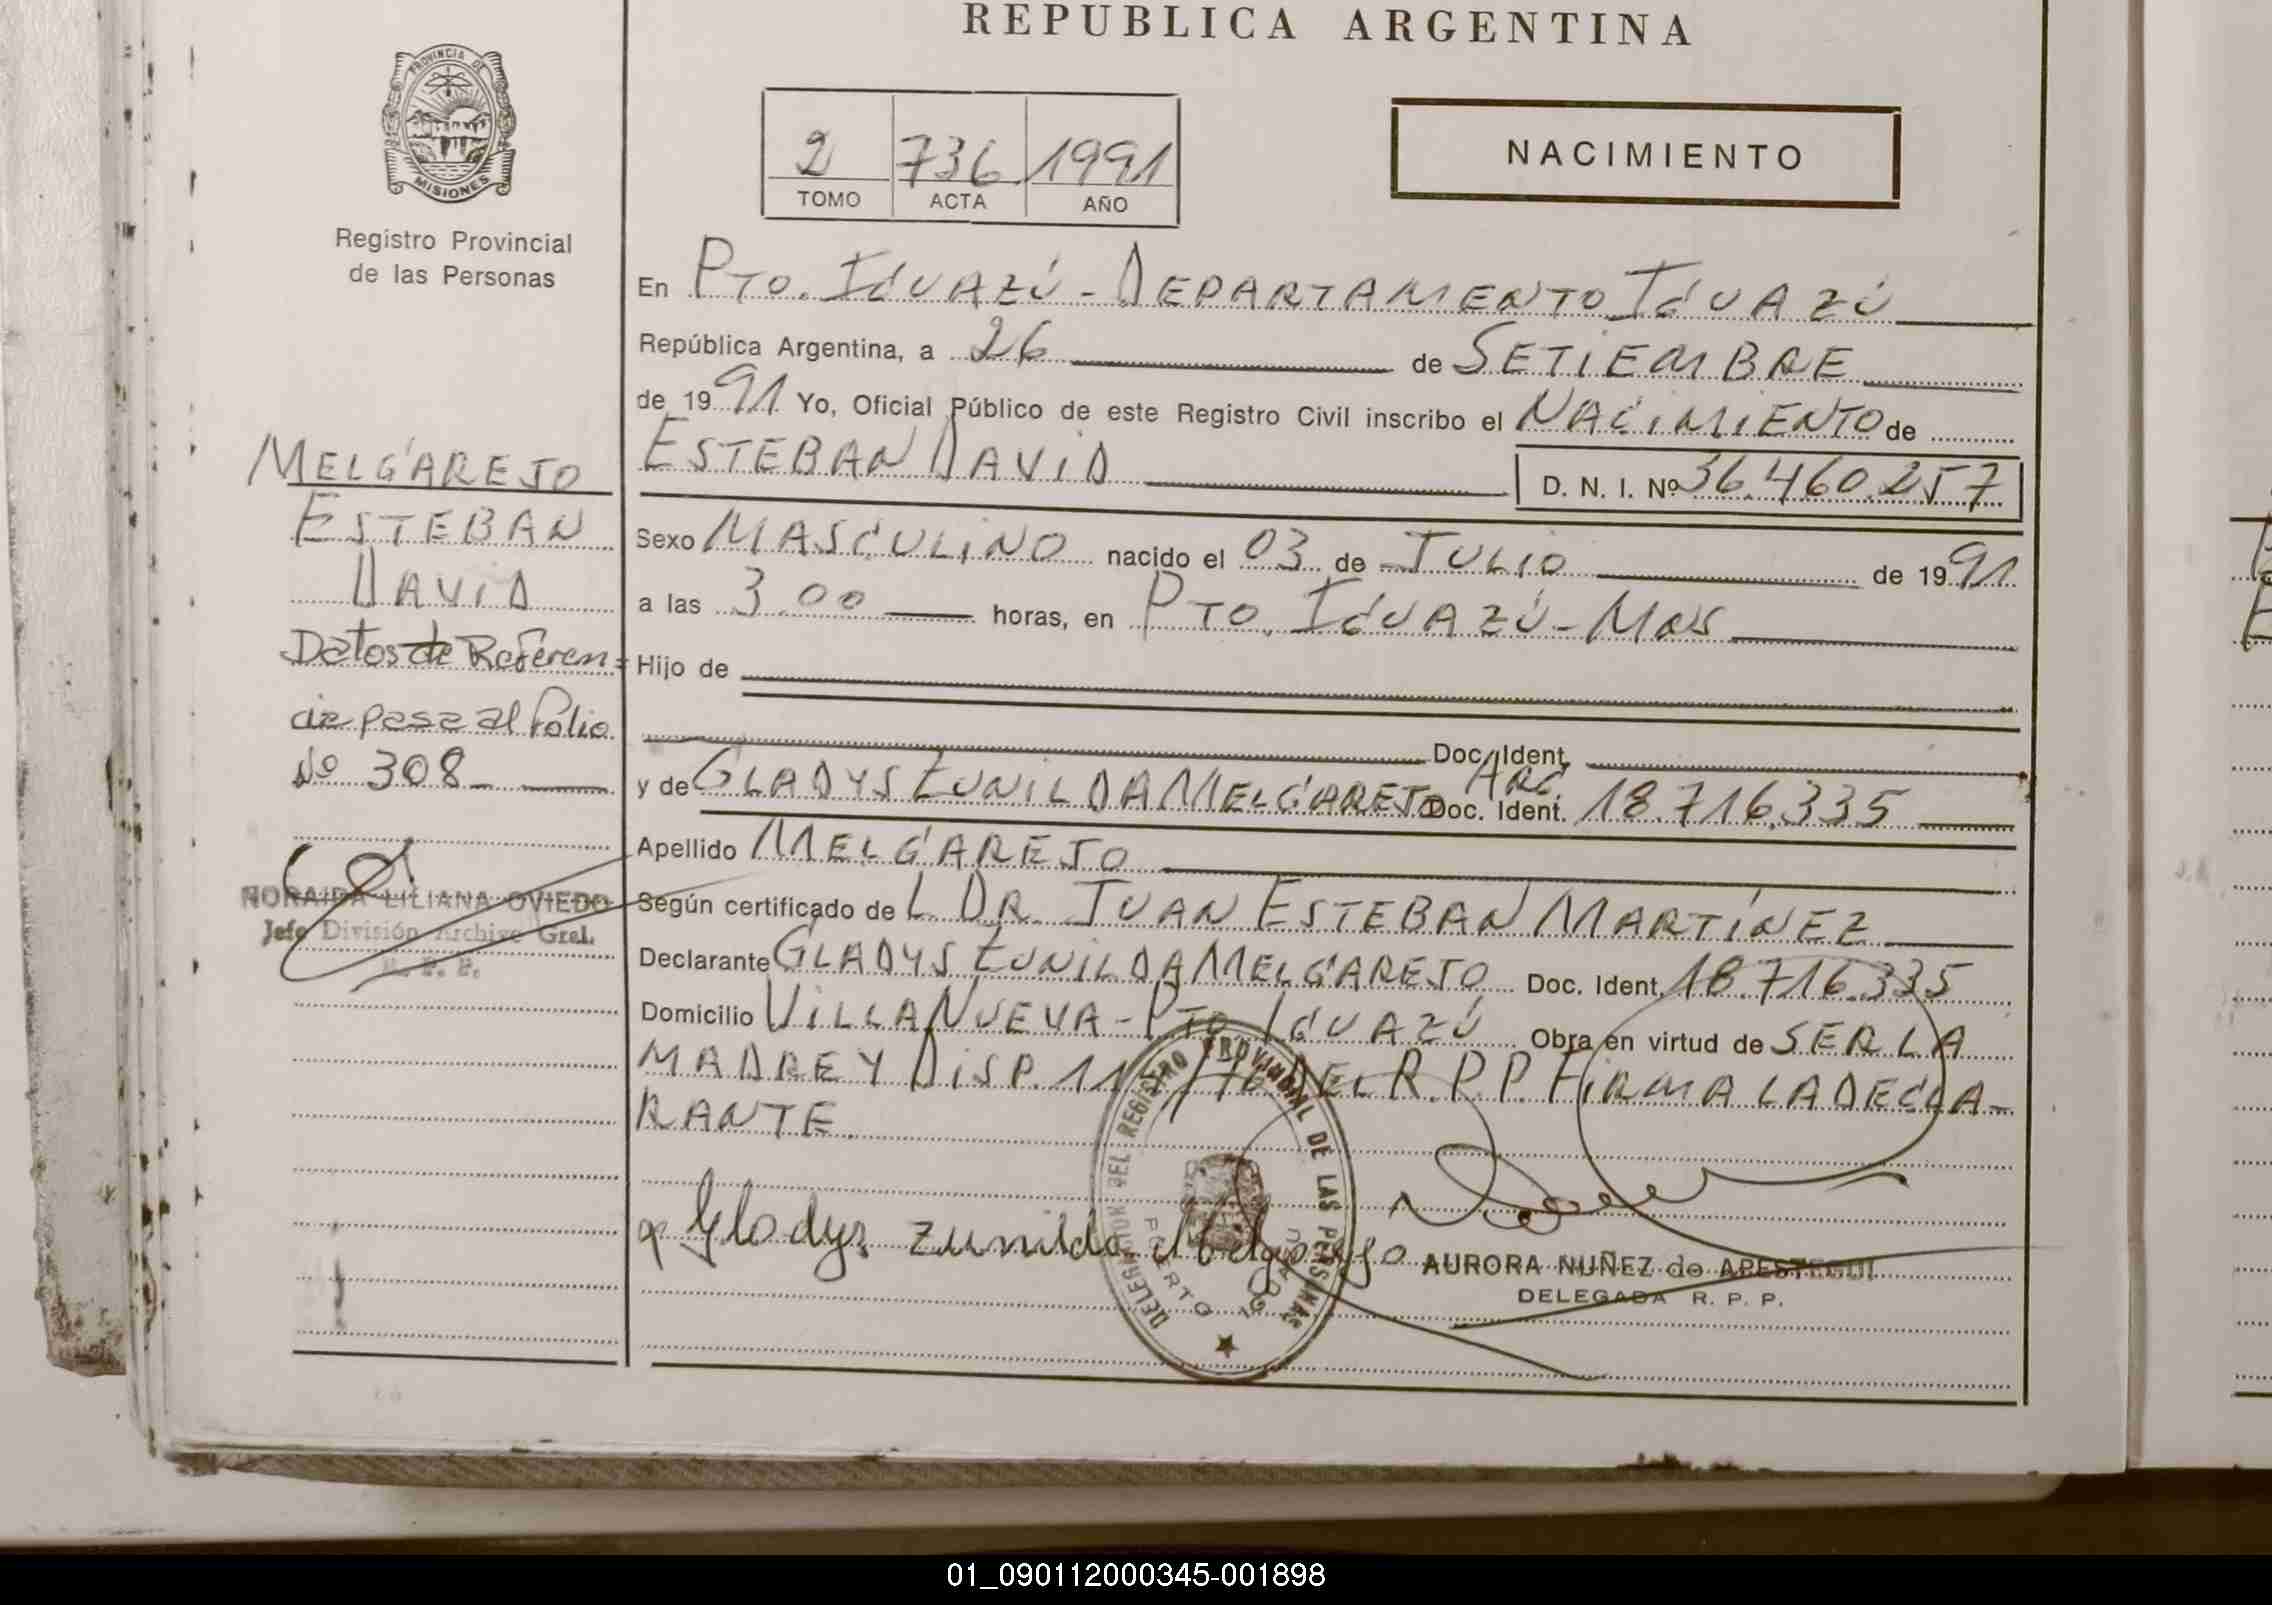 REPUBLICA ARGENTINA
PROVINCIA DE
MISIONES
Registro Provincial
de las Personas
2 736 1991
TOMO ACTA AÑO
NACIMIENTO
En PTO. IGUAZÚ - DEPARTAMENTO IGUAZÚ
República Argentina, a 26 de SETIEMBRE
de 1991 Yo, Oficial Público de este Registro Civil inscribo el NACIMIENTO de
ESTEBAN DAVID
D. N. I. Nº 36.460.257
Sexo MASCULINO nacido el 03 de JULIO de 1991
a las 3.00 horas, en PTO. IGUAZÚ - MNS
Hijo de
Doc. Ident.
y de GLADYS ZUNILDA MELGAREJO Doc. Ident. ARG. 18.716.335
Apellido MELGAREJO
Según certificado de L DR. JUAN ESTEBAN MARTÍNEZ
Declarante GLADYS ZUNILDA MELGAREJO Doc. Ident. 18.716.335
Domicilio VILLA NUEVA - PTO IGUAZÚ Obra en virtud de SER LA
MADRE Y DISP. /76 DEL R.P.P. FIRMA LA DECLA-
RANTE.
Gladys Zunilda Melgarejo
DELEGACION DEL REGISTRO PROVINCIAL DE LAS PERSONAS
PUERTO IGUAZU
AURORA NUÑEZ de APESTEGUI
DELEGADA R. P. P.
MELGAREJO
ESTEBAN
DAVID
Datos de Referen=
cia pasa al folio
Nº 308
NORAIDA LILIANA OVIEDO
Jefe División Archivo Gral.
R. P. P.
01_090112000345-001898